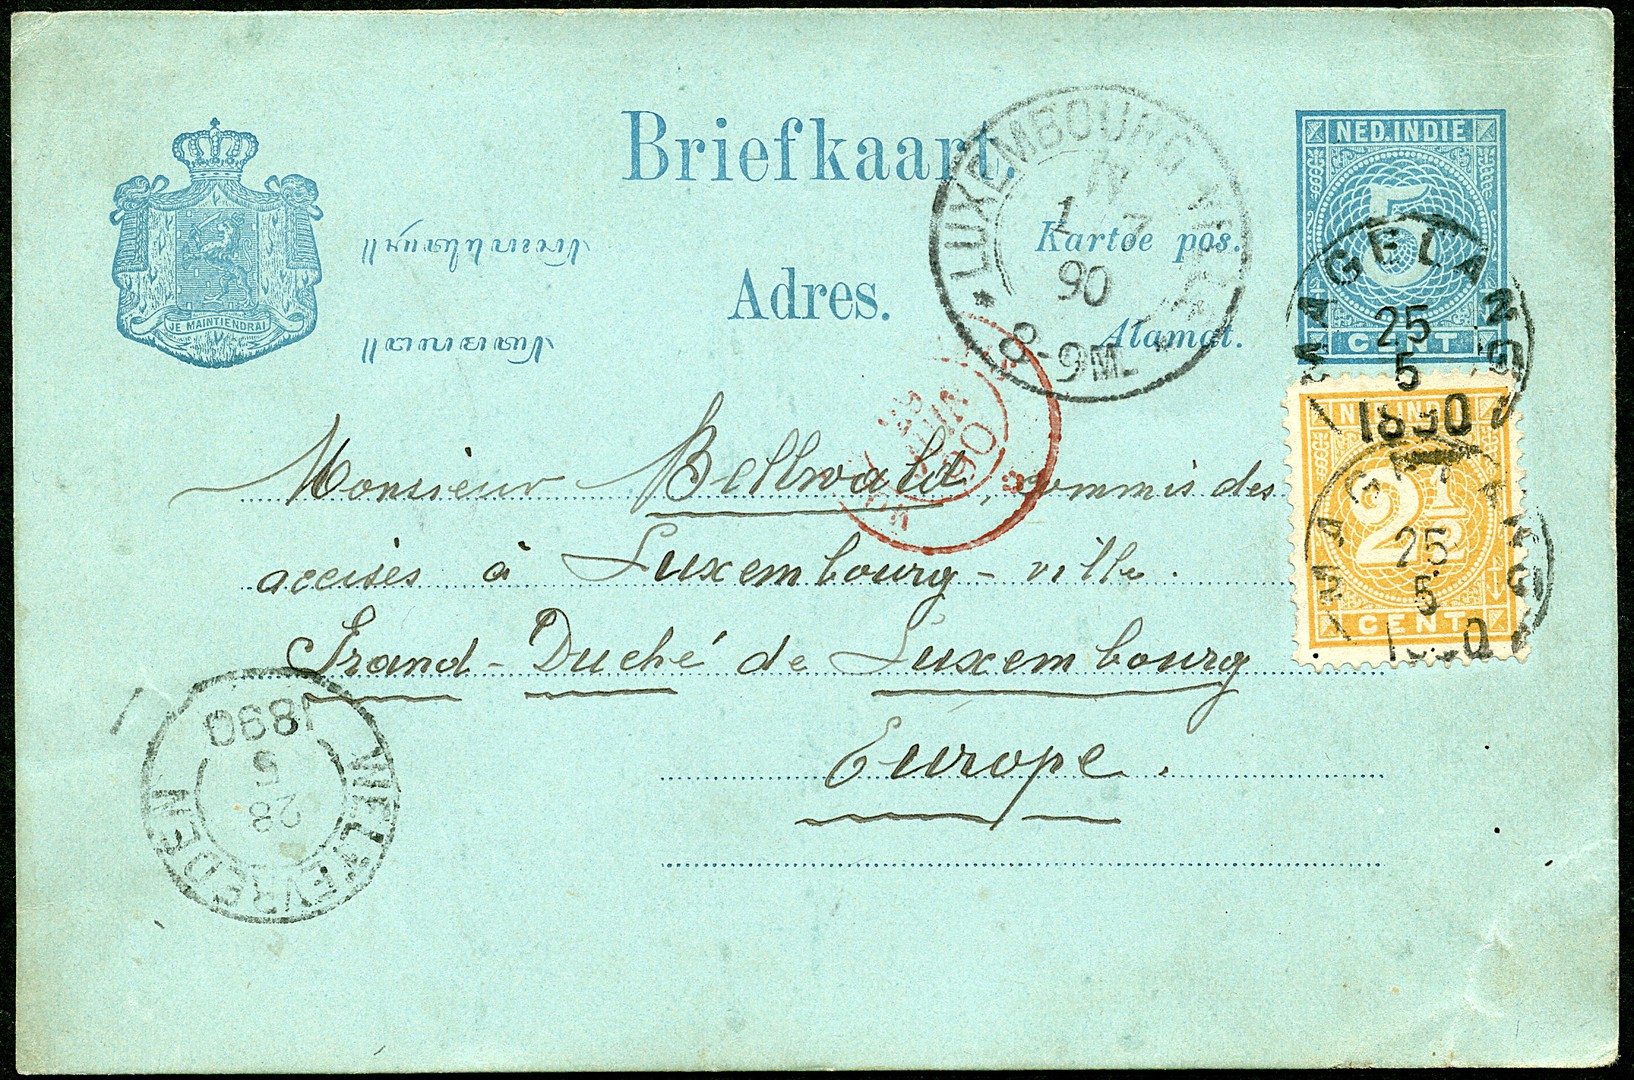 Briefkaart.
Kartoe pos.
Adres.
Alamat.
JE MAINTIENDRAI
NED. INDIE
5
CENT
NED. INDIE
2½
CENT
LUXEMBOURG VILLE
1 7
90
8-9M.
MAGELANG
25
5
1890
MAGELANG
25
5
1890
90
Monsieur Bellwald, commis des
accises à Luxembourg-ville.
Grand-Duché de Luxembourg
Europe.
WELTEVREDEN
28
5
1890